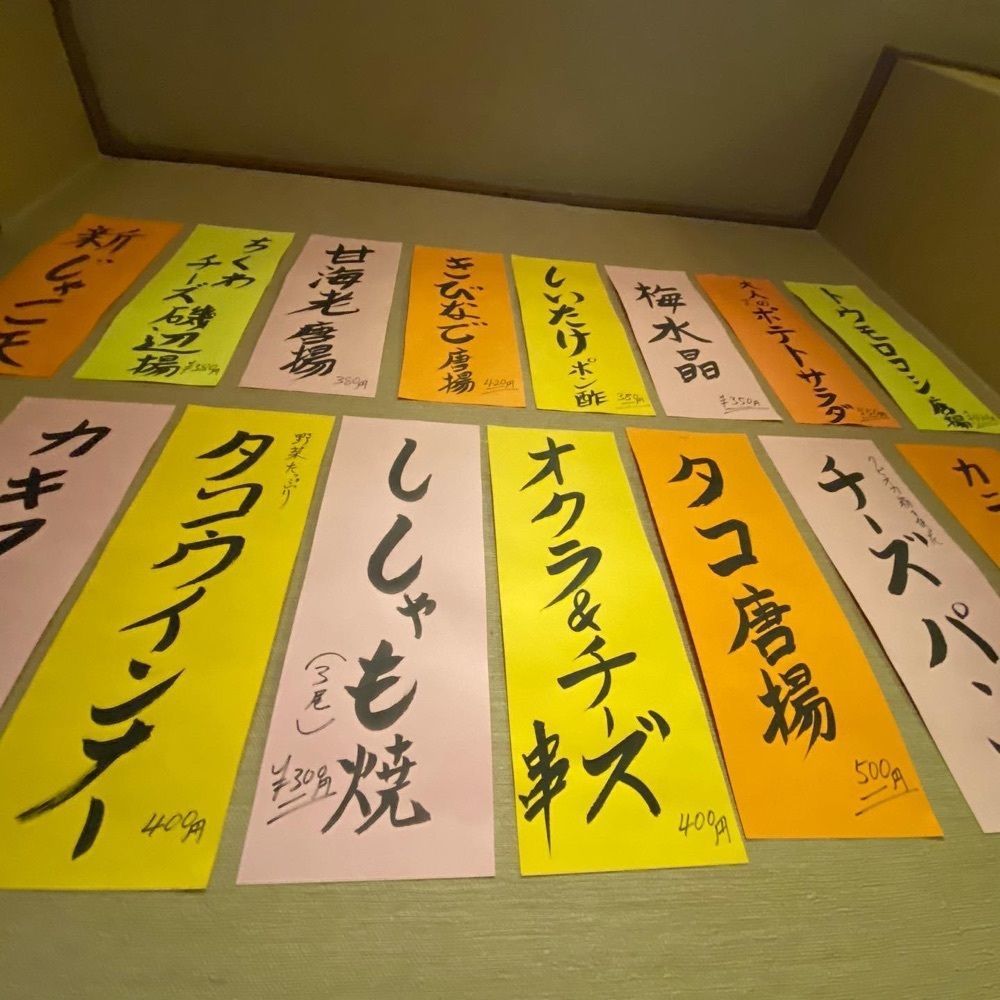 新じゃこ天
ちくわ
チーズ磯辺揚
¥380円
甘海老唐揚
380円
きびなご唐揚
420円
しいたけポン酢
380円
梅水晶
¥350円
大人のポテトサラダ
トウモロコシ唐揚
カキフ
野菜たっぷり
タコウインナー
400円
ししゃも焼
(3尾)
¥300円
オクラ&チーズ
串
400円
タコ唐揚
500円
チーズパン
カニ